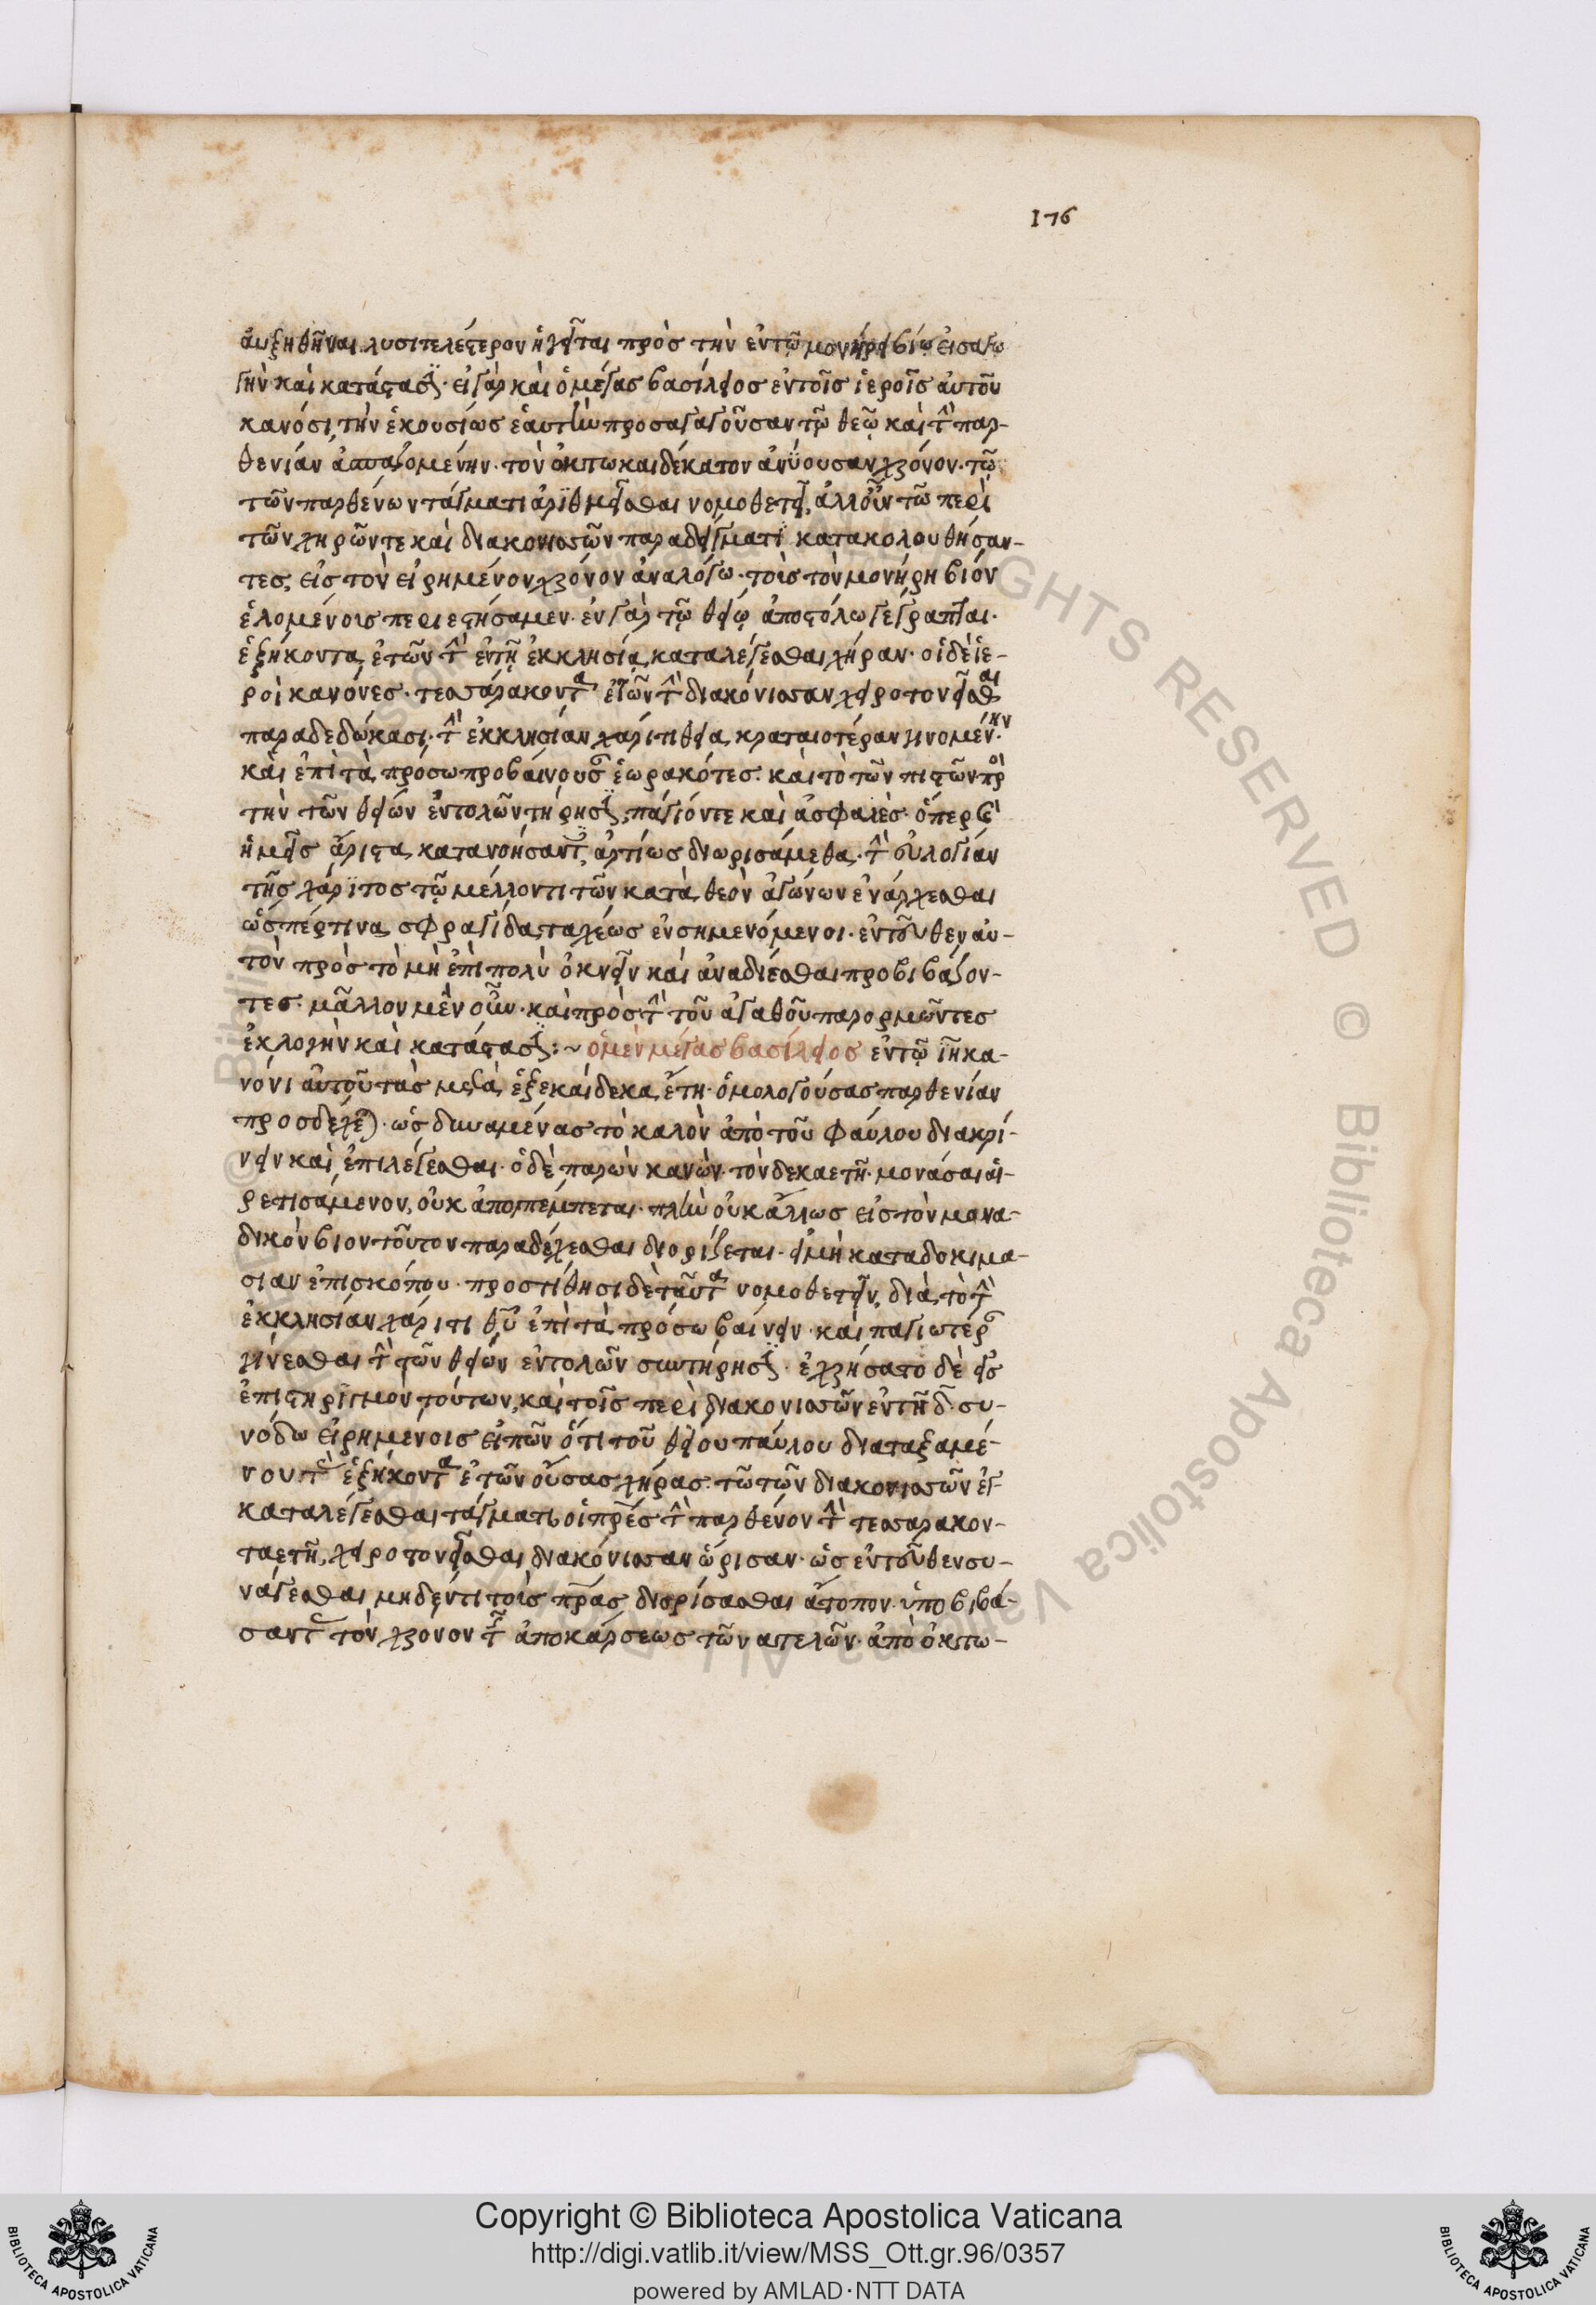 176
αὐξηθῆναι λυσιτελέστερον ἡγεῖται πρὸς τὴν ἐν τῷ μονήρει βίῳ εἰσαγω
γὴν καὶ κατάστασιν· εἰ γὰρ καὶ ὁ μέγας βασίλειος ἐν τοῖς ἱεροῖς αὐτοῦ
κανόσι, τὴν ἑκουσίως ἑαυτὴν προσαγαγοῦσαν τῷ θεῷ καὶ τὴν παρ-
θενίαν ἀσπαζομένην· τὸν ὀκτωκαιδέκατον ἀνύουσαν χρόνον· τῷ
τῶν παρθένων τάγματι ἀριθμεῖσθαι νομοθετεῖ, ἀλλ' οὖν τῷ περὶ
τῶν χηρῶν τε καὶ διακονισσῶν παραδείγματι κατακολουθήσαν-
τες, εἰς τὸν εἰρημένον χρόνον ἀναλόγω· τοῖς τὸν μονήρη βίον
ἑλομένοις περιεστήσαμεν· ἐν γὰρ τῷ θείῳ ἀποστόλω γέγραπται·
ἑξήκοντα ἐτῶν τὴν ἐν τῇ ἐκκλησία καταλέγεσθαι χήραν· οἱ δὲ ἱε-
ροὶ κανόνες· τεσσαράκοντα ἐτῶν τὴν διακόνισσαν χειροτονεῖσθαι
παραδεδώκασι· τὴν ἐκκλησίαν χάριτι θεία κραταιοτέραν γινομένην·
καὶ ἐπὶ τὰ πρόσω προβαίνουσαν ἑωρακότες· καὶ τὸ τῶν πιστῶν πρὸς
τὴν τῶν θείων ἐντολῶν τήρησιν, πάγιόν τε καὶ ἀσφαλές· ὅπερ καὶ
ἡμεῖς ἄριστα κατανοήσαντες ἀρτίως διωρισάμεθα· τὴν εὐλογίαν
τῆς χάριτος τῷ μέλλοντι τῶν κατὰ θεὸν ἀγώνων ἐνάρχεσθαι
ὥσπέρ τινα σφραγίδα ταχέως ἐνσημενόμενοι· ἐντεῦθεν αὐ-
τὸν πρὸς τὸ μὴ ἐπὶ πολὺ ὀκνεῖν καὶ ἀναδύεσθαι προβιβάζον-
τες· μᾶλλον μὲν οὖν· καὶ πρὸς τὴν τοῦ ἀγαθοῦ παρορμῶντες
ἐκλογὴν καὶ κατάστασιν:~ ὁ μὲν μέγας βασίλειος ἐν τῷ ιη κα-
νόνι αὐτοῦ τὰς μετὰ ἑξεκαίδεκα ἔτη· ὁμολογούσας παρθενίαν
προσδέχεται· ὡς δυναμένας τὸ καλὸν ἀπὸ τοῦ φαύλου διακρί-
νειν καὶ ἐπιλέγεσθαι· ὁ δὲ παρὼν κανὼν· τὸν δεκαετῆ· μονάσαι αἱ-
ρετισάμενον, οὐκ ἀποπέμπεται· πλὴν οὐκ ἄλλως εἰς τὸν μονα-
δικὸν βίον τοῦτον παραδέχεσθαι διορίζεται· εἰ μὴ κατα δοκιμα-
σίαν ἐπισκόπου· προστίθησι δὲ ταῦτα νομοθετεῖν, διὰ τὸ τὴν
ἐκκλησίαν χάριτι θεοῦ ἐπὶ τὰ πρόσω βαίνειν· καὶ παγιωτέραν
γίνεσθαι τὴν τῶν θείων ἐντολῶν συντήρησιν· ἐχρήσατο δὲ εἰς
ἐπιστηριγμὸν τούτων, καὶ τοῖς περὶ διακονισσῶν ἐν τῇ δ συ-
νόδω εἰρημένοις εἰπὼν ὅτι τοῦ θείου παύλου διαταξαμέ-
νου τὰς ἑξήκοντα ἐτῶν οὔσας χήρας· τῷ τῶν διακονισσῶν ἐγ-
καταλέγεσθαι τάγματι, οἱ πρες τὴν παρθένον τὴν τεσσαρακον-
ταετῆ, χειροτονεῖσθαι διακόνισσαν ὥρισαν· ὡς ἐντεῦθεν συ-
νάγεσθαι μηδέν τι τοῖς πρας διορίσασθαι ἄτοπον· ὑποβιβά-
σαντας τὸν χρόνον τῆς ἀποκάρσεως τῶν ατελῶν· ἀπὸ ὀκτω-
Copyright © Biblioteca Apostolica Vaticana
http://digi.vatlib.it/view/MSS_Ott.gr.96/0357
powered by AMLAD·NTT DATA